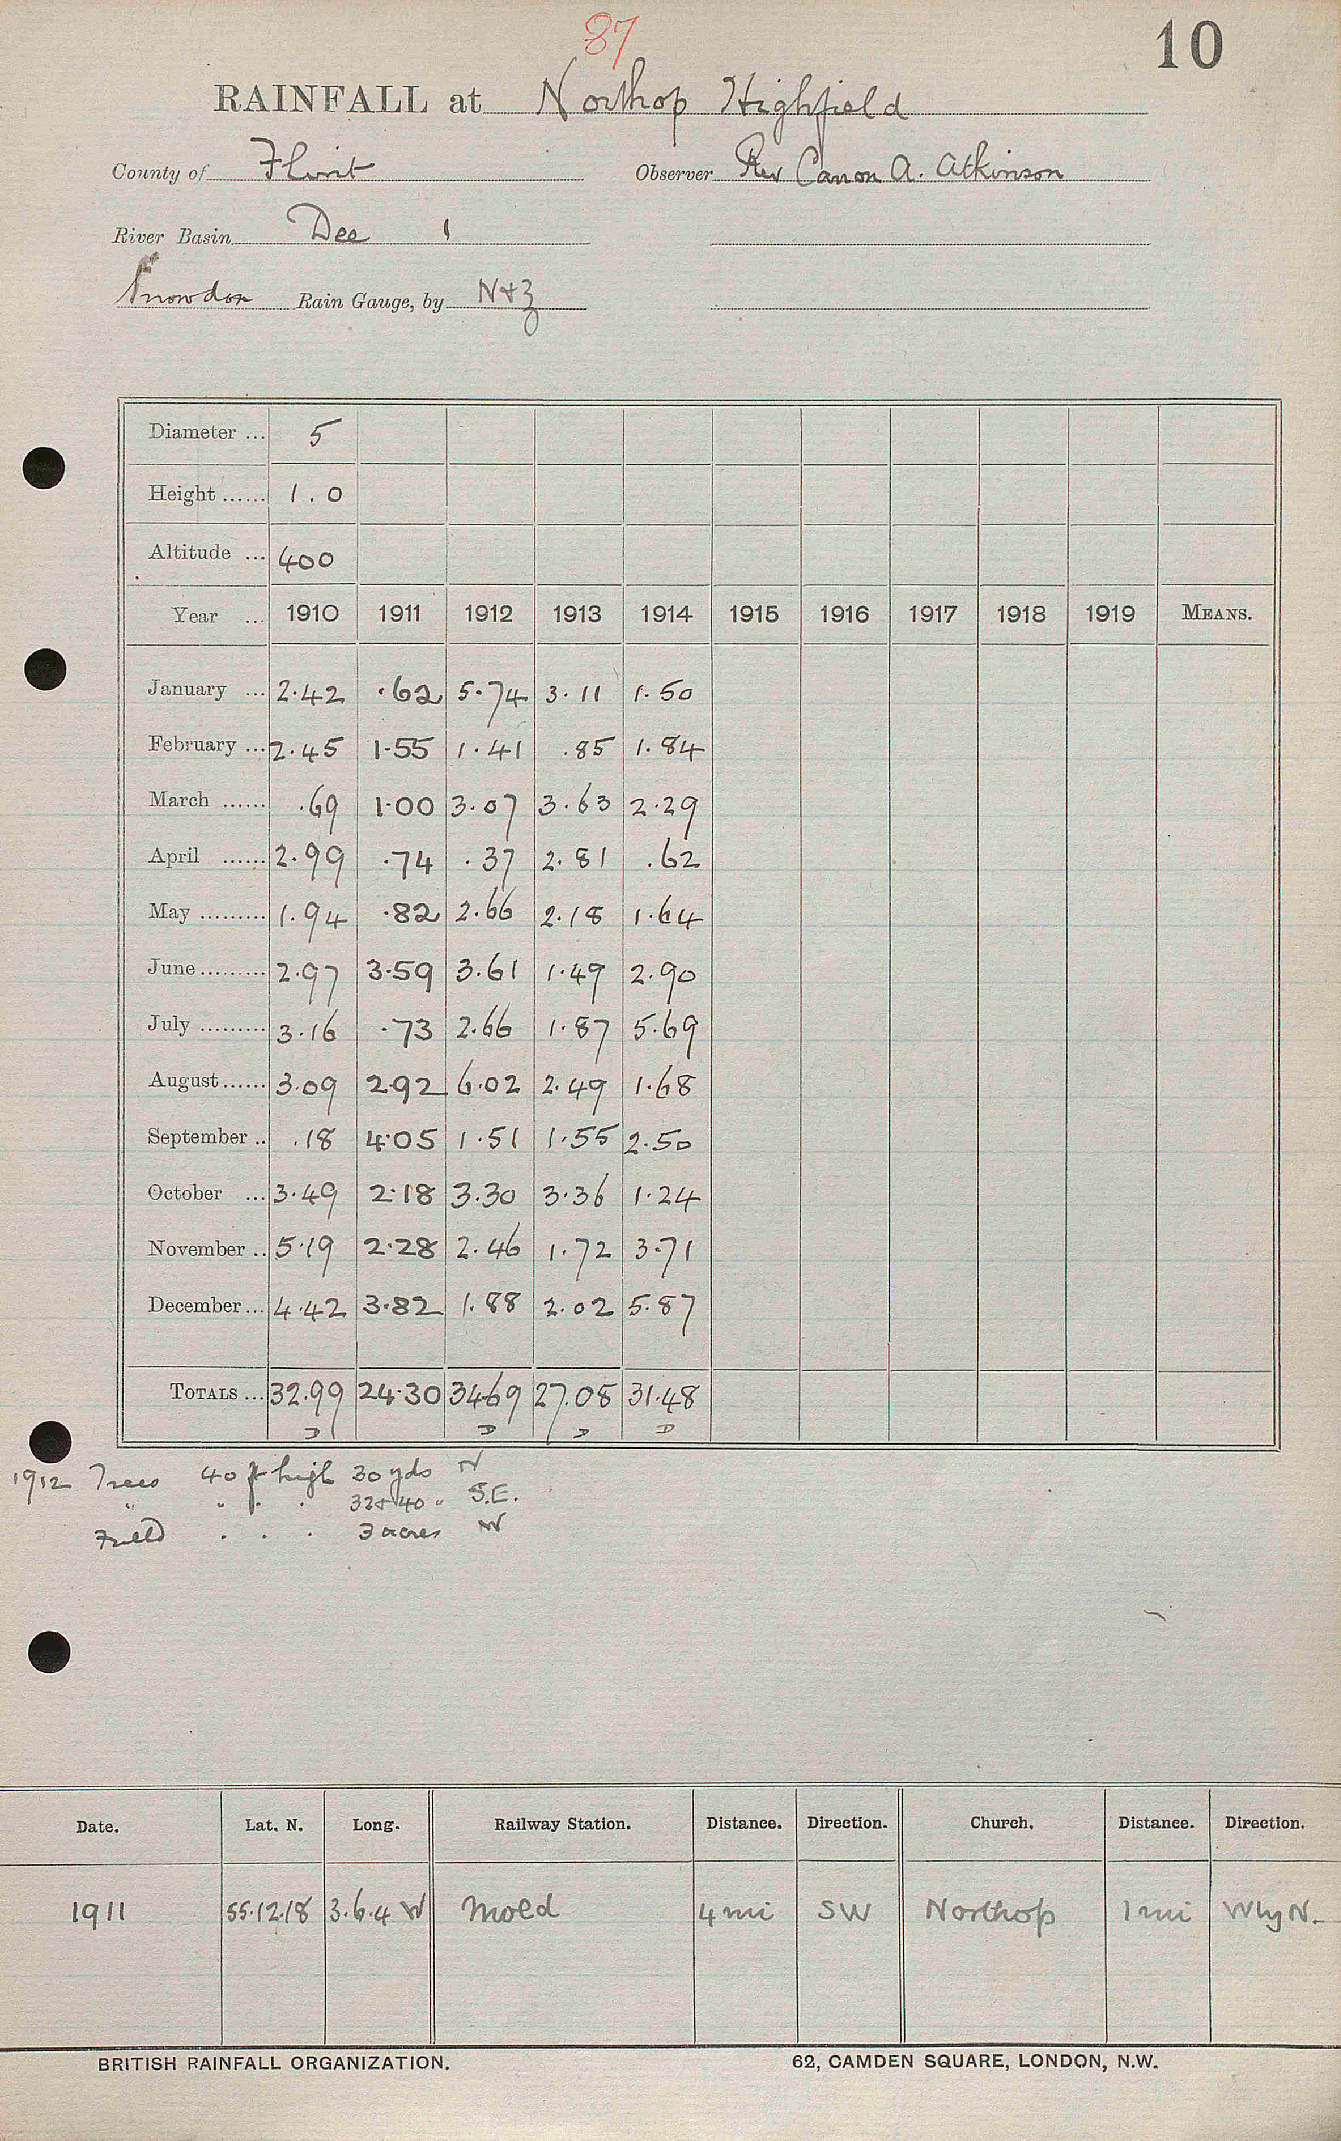 87
10
RAINFALL at Northop Highfield
County of Flint Observer Rev Canon A. Atkinson
River Basin Dee 1
Snowdon Rain Gauge, by N & Z
Diameter ... 5
Height ...... 1.0
Altitude ... 400
Year ... 1910 1911 1912 1913 1914 1915 1916 1917 1918 1919 MEANS.
January ... 2.42 .62 5.74 3.11 1.50
February ... 2.45 1.55 1.41 .85 1.84
March ...... .69 1.00 3.07 3.63 2.29
April ...... 2.99 .74 .37 2.81 .62
May ......... 1.94 .82 2.66 2.18 1.64
June ......... 2.97 3.59 3.61 1.49 2.90
July ......... 3.16 .73 2.66 1.87 5.69
August ...... 3.09 2.92 6.02 2.49 1.68
September .. .18 4.05 1.51 1.55 2.50
October ... 3.49 2.18 3.30 3.36 1.24
November .. 5.19 2.28 2.46 1.72 3.71
December ... 4.42 3.82 1.88 2.02 5.87
TOTALS ... 32.99 24.30 34.69 27.08 31.48
D D D D
1912 Trees 40 ft high 30 yds N
" " . . 32 & 40 " S.E.
Field . . . 3 acres W
Date. Lat. N. Long. Railway Station. Distance. Direction. Church. Distance. Direction.
1911 55.12.18 3.6.4 W Mold 4 mi SW Northop 1 mi W by N.
BRITISH RAINFALL ORGANIZATION. 62, CAMDEN SQUARE, LONDON, N.W.